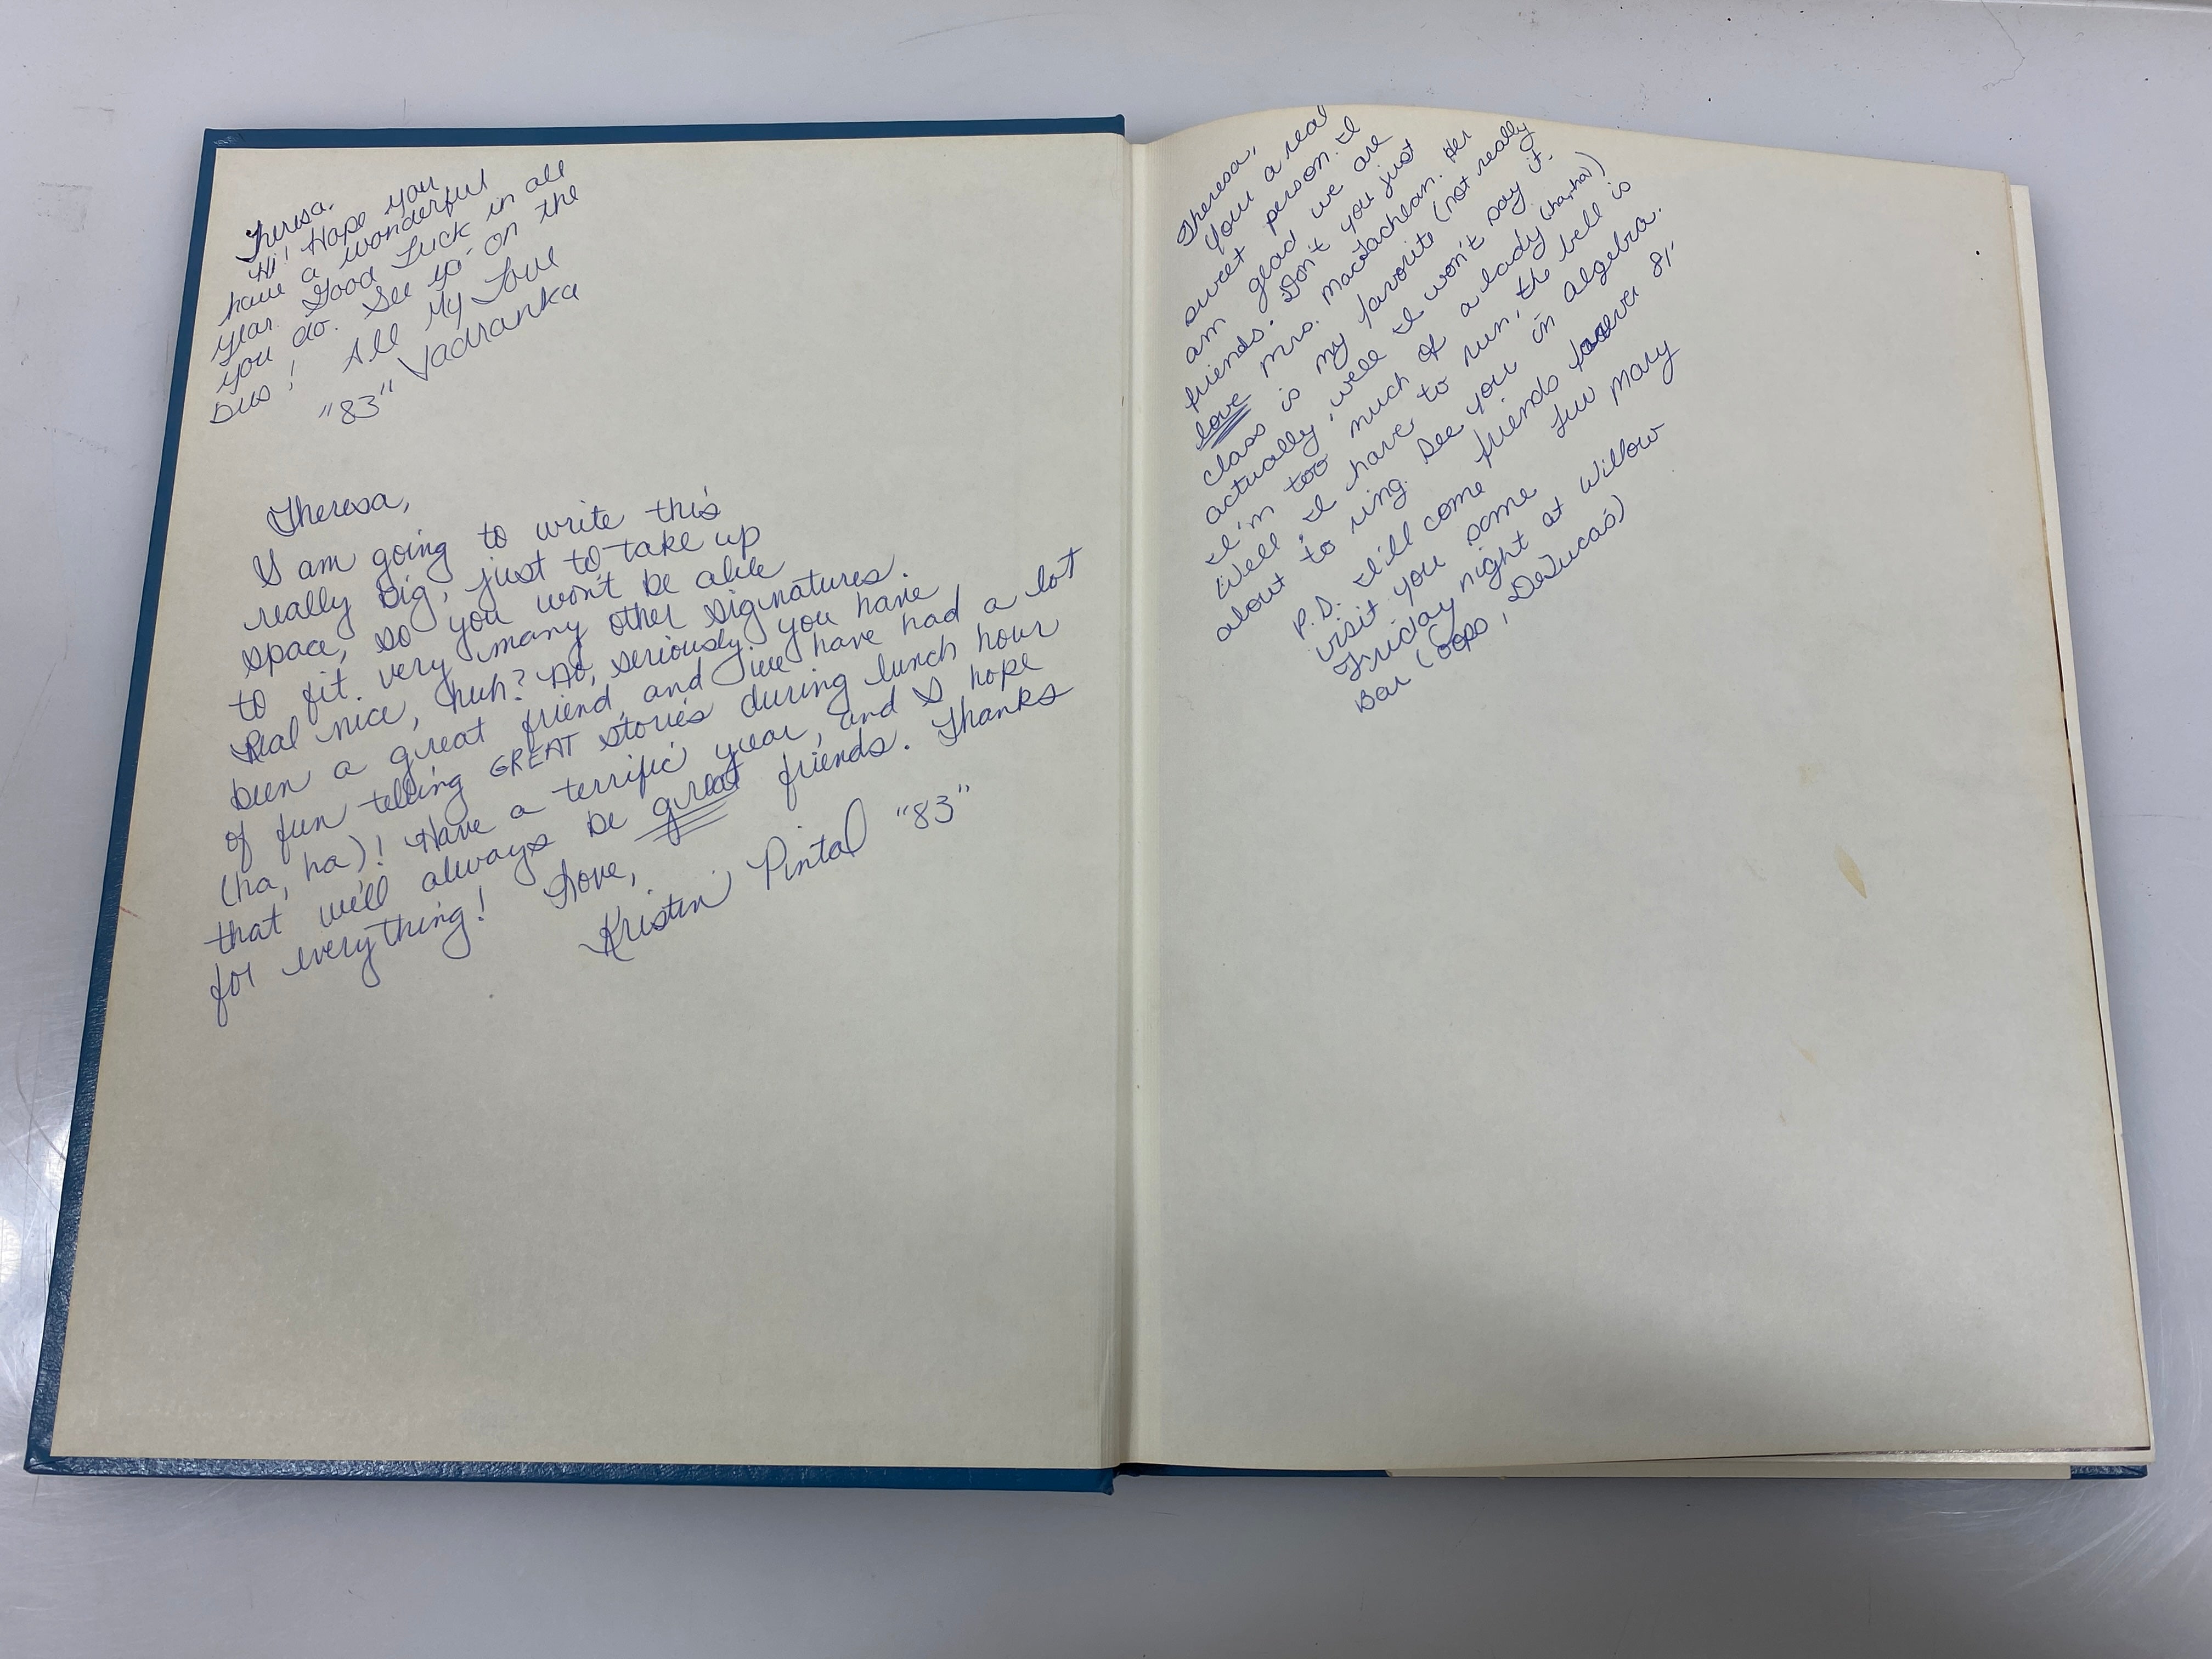 Theresa,
Hi! Hope you
have a wonderful
year. Good Luck in all
you do. See ya on the
bus!
All My Love
"83" Vadranka
Theresa,
I am going to write this
really big, just to take up
space, so you won't be able
to fit very many other signatures.
Real nice, huh? No, seriously, you have
been a great friend, and we have had a lot
of fun telling GREAT stories during lunch hour
(ha, ha)! Have a terrific year, and I hope
that we'll always be great friends. Thanks
for everything! Love,
Kristin Pintal "83"
Theresa,
Your a real
sweet person. I
am glad we are
friends. Don't you just
love Mrs. MacLachlan. Her
class is my favorite (not really
actually, well I won't say it.
I'm too much of a lady (ha,ha)
Well I have to run, the bell is
about to ring. See you in algebra.
friends forever 81'
Lw Mary
P.S. I'll come
visit you some
Friday night at Willow
Bar (oops, DeLucas)